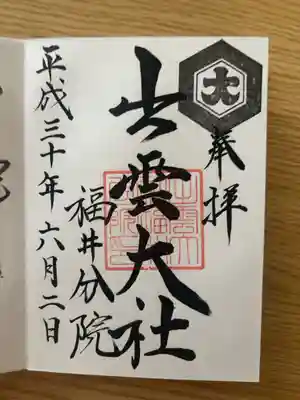 奉拝
出雲大社
福井分院
平成三十年六月二日
大